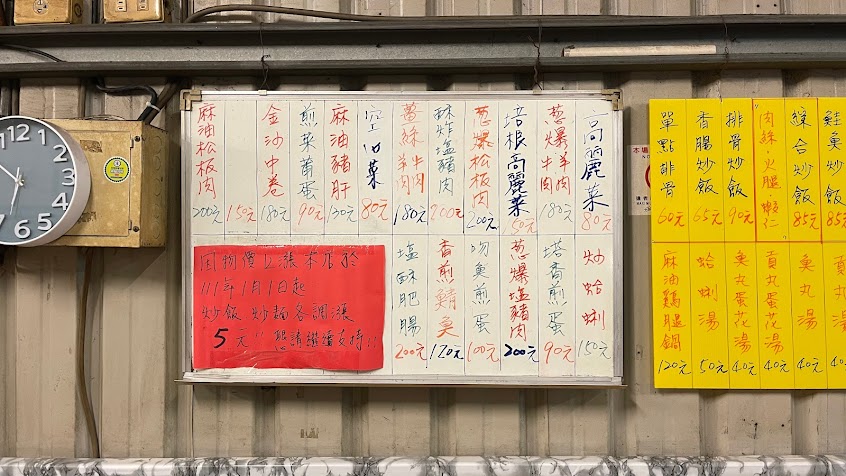 高麗菜 80元
葱爆羊肉 牛肉 180元
培根高麗菜 150元
葱爆松板肉 200元
酥炸塩豬肉 200元
薑絲羊肉 牛肉 180元
空心菜 80元
麻油豬肝 130元
煎菜蒲蛋 90元
金沙中卷 180元
150元
麻油松板肉 200元
炒蛤蜊 150元
塔香煎蛋 90元
葱爆塩豬肉 200元
吻魚煎蛋 100元
香煎鯖魚 120元
塩酥肥腸 200元
因物價上漲本店於
111年1月1日起
炒飯 炒麵各調漲
"5元" 懇請繼續支持!!
鮭魚炒飯 85元
綜合炒飯 85元
肉絲·火腿 蝦仁
排骨炒飯 90元
香腸炒飯 65元
單點排骨 60元
湯 40
魚丸湯 40元
貢丸蛋花湯 40元
魚丸蛋花湯 40元
蛤蜊湯 50元
麻油鷄腿鍋 120元
12
1
2
3
4
5
6
7
11